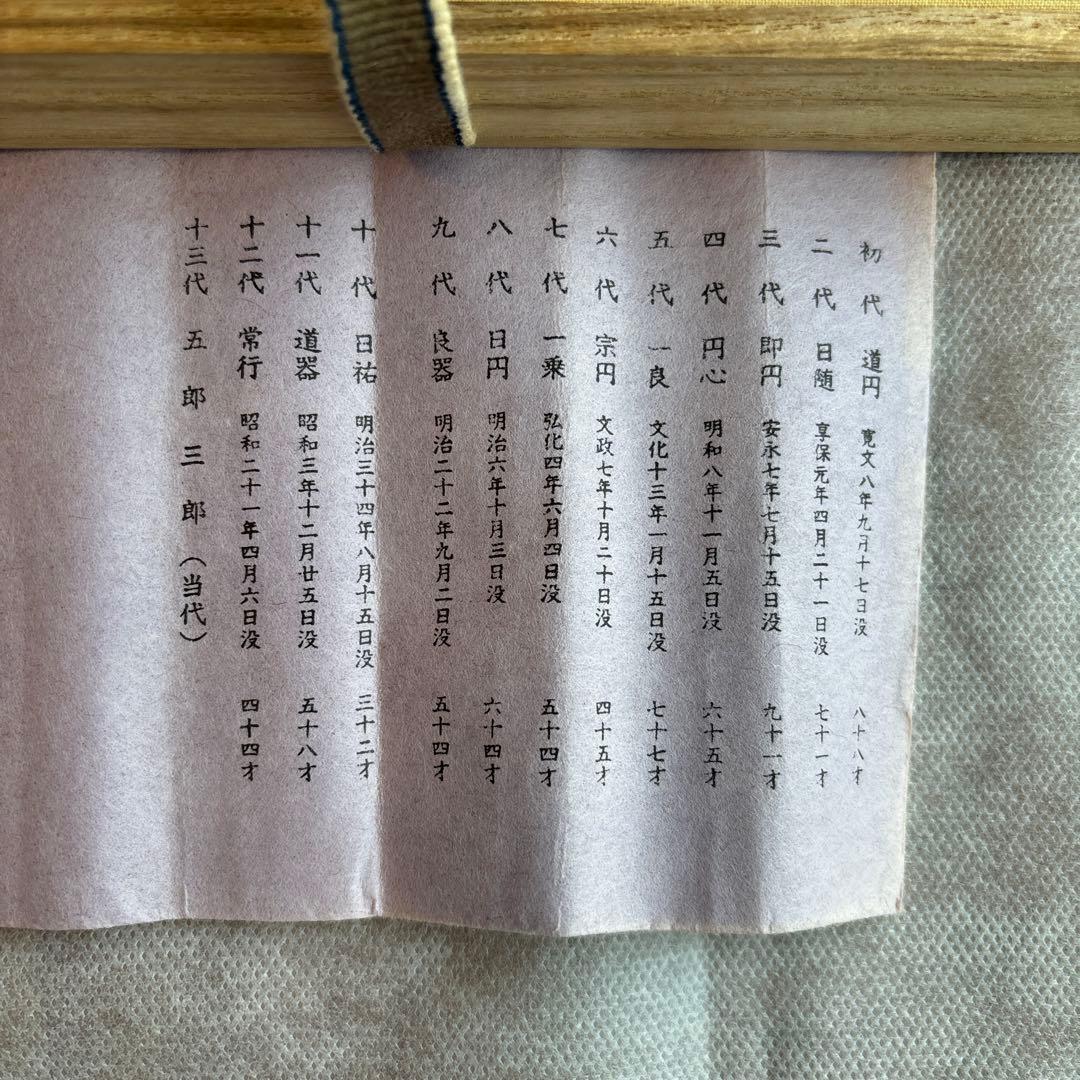 初代 道円 寛文八年九月十七日没 八十八才
二代 日随 享保元年四月二十一日没 七十一才
三代 即円 安永七年七月十五日没 九十一才
四代 円心 明和八年十一月五日没 六十五才
五代 一良 文化十三年一月十五日没 七十七才
六代 宗円 文政七年十月二十日没 四十五才
七代 一乗 弘化四年六月四日没 五十四才
八代 日円 明治六年十月三日没 六十四才
九代 良器 明治二十二年九月二日没 五十四才
十代 日祐 明治三十四年八月十五日没 三十二才
十一代 道器 昭和三年十二月廿五日没 五十八才
十二代 常行 昭和二十一年四月六日没 四十四才
十三代 五郎三郎（当代）